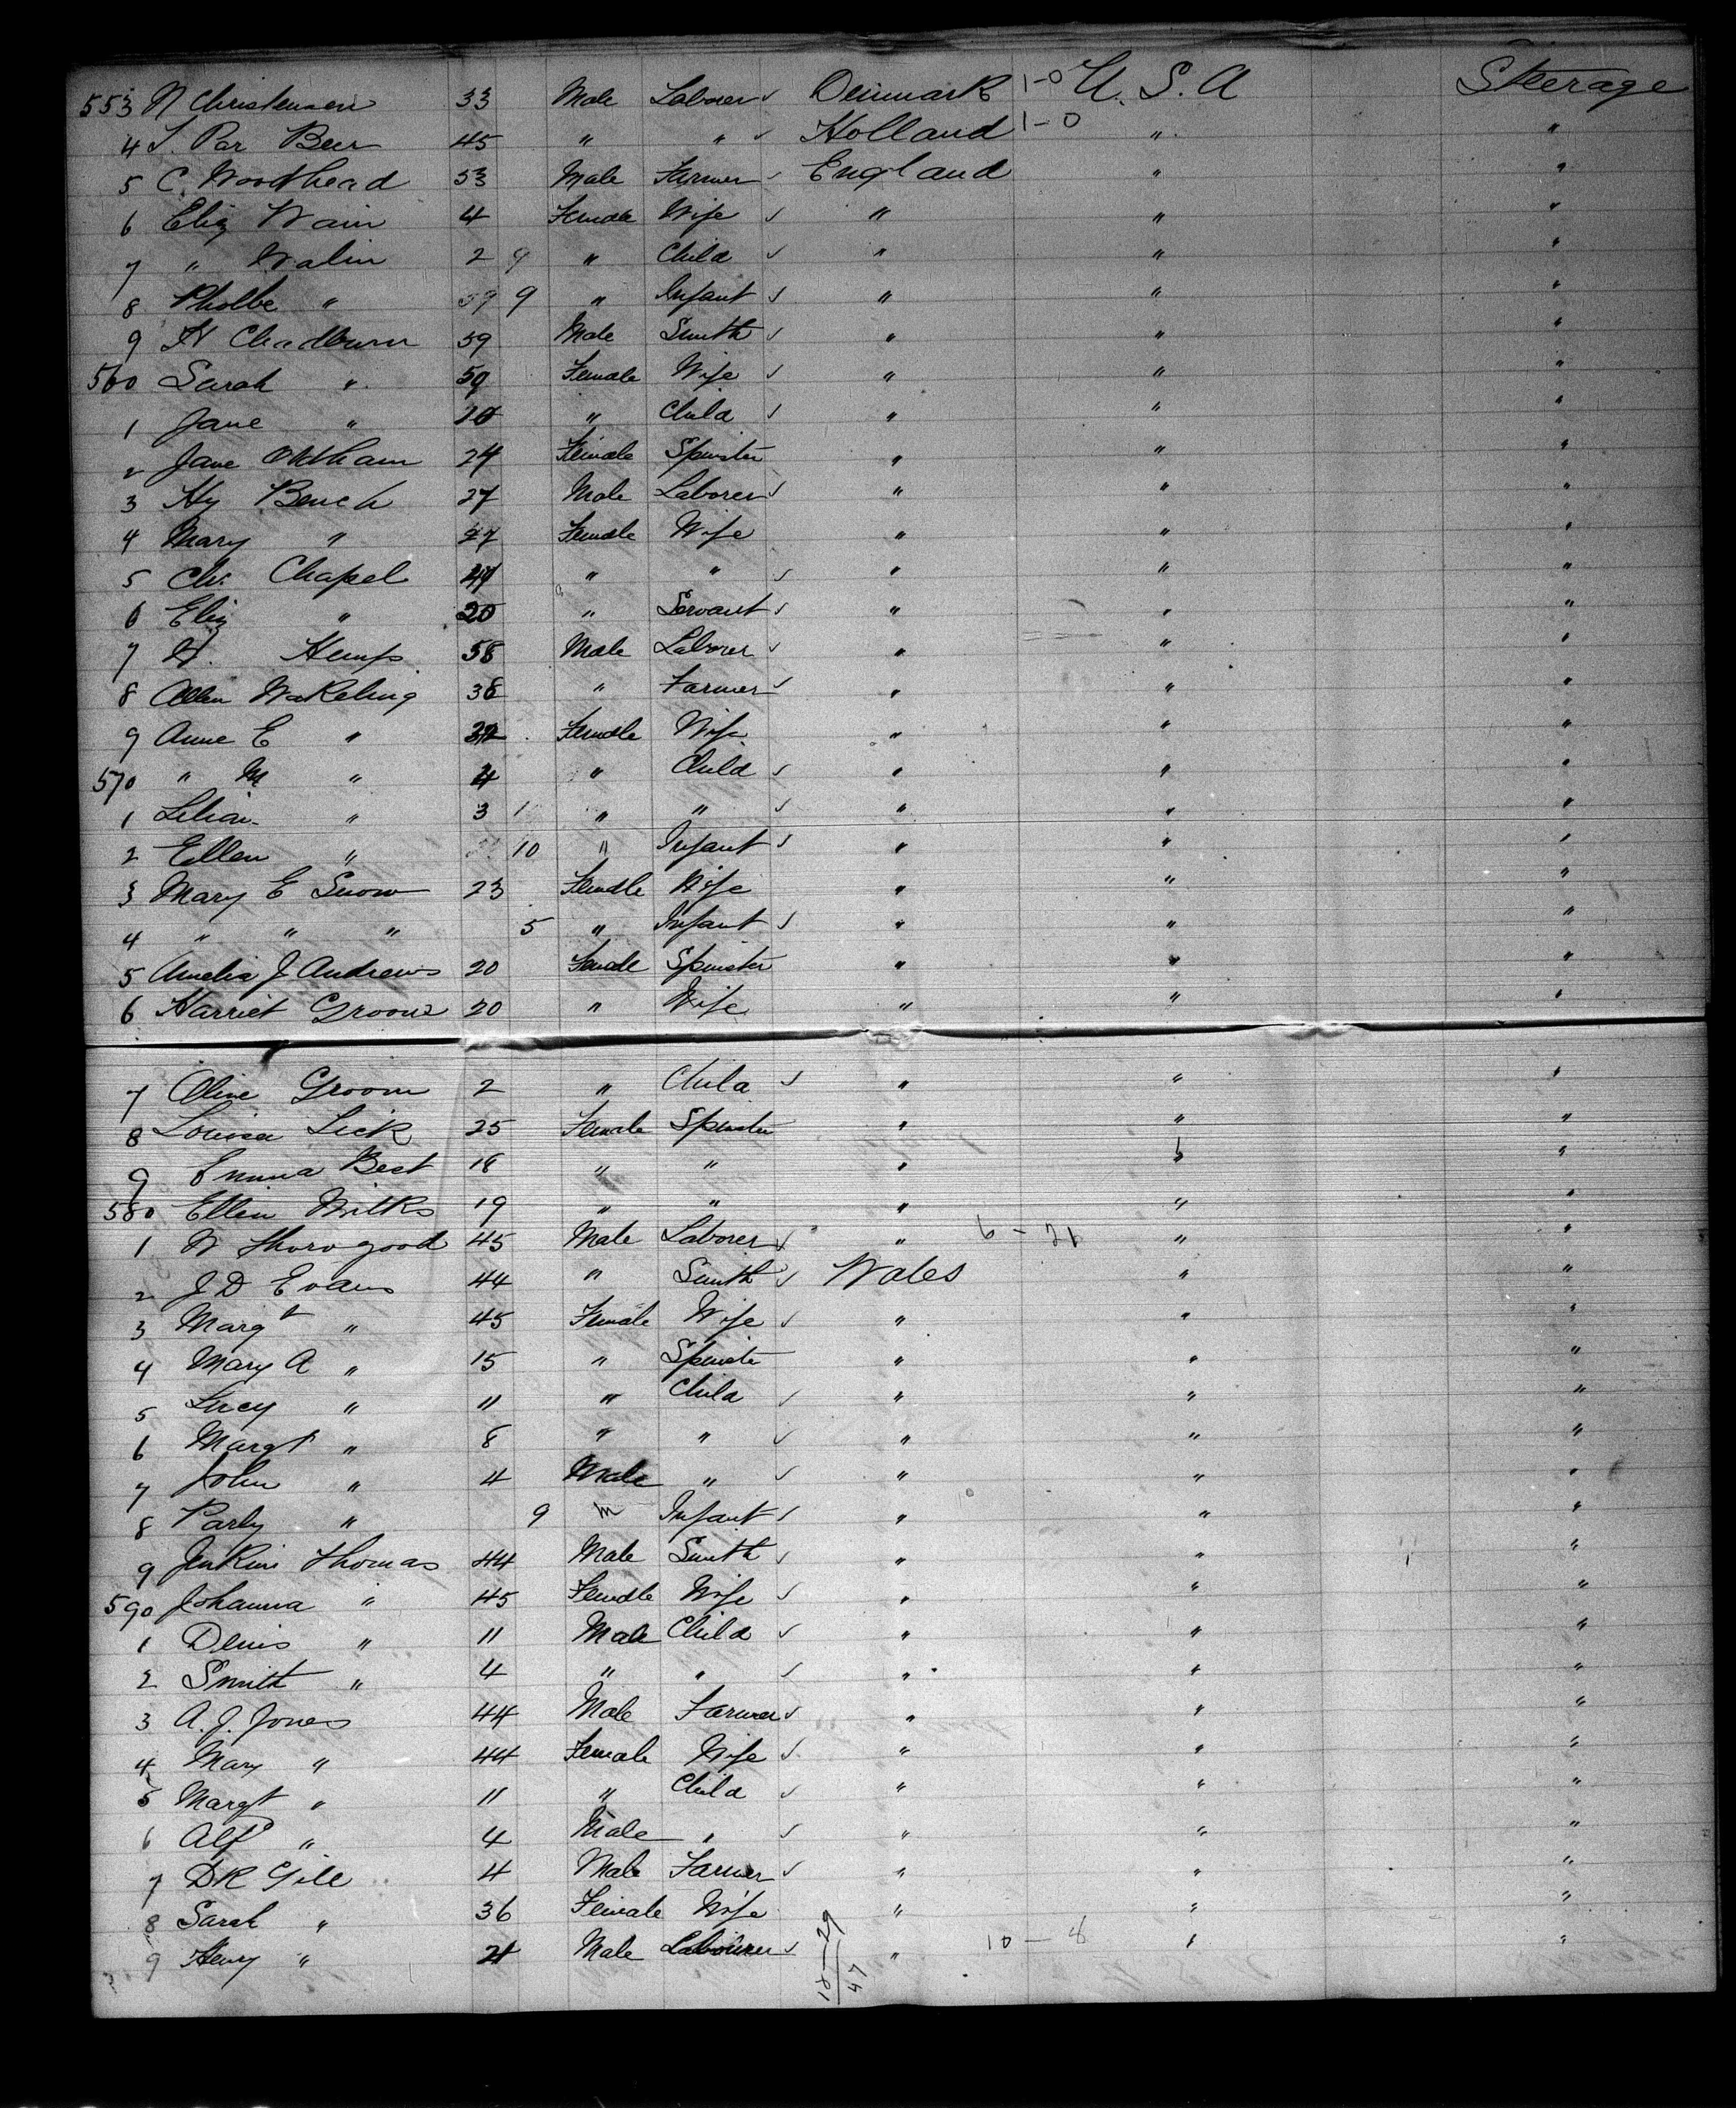 553 N Christensen 33 Male Laborer ✓ Denmark 1-0 U. S. A Steerage
4 S. Par Beer 45 " " ✓ Holland 1-0 " "
5 C. Woodhead 53 Male Farmer ✓ England " "
6 Eliz Wain 4 Female Wife ✓ " " "
7 " Walin 2 9 " Child ✓ " " "
8 Pholbe " 9 " Infant ✓ " " "
9 H Chadburn 59 Male Smith ✓ " " "
560 Sarah " 59 Female Wife ✓ " " "
1 Jane " 20 " Child ✓ " " "
2 Jane Oldham 24 Female Spinster " " "
3 Hy Bench 27 Male Laborer ✓ " " "
4 Mary " 27 Female Wife " " "
5 Chr. Chapel " " ✓ " " "
6 Eliz " 20 " Servant ✓ " " "
7 H. Kemp 58 Male Laborer ✓ " " "
8 Allen Wakeling 38 " Farmer ✓ " " "
9 Anne E " 32 Female Wife " " "
570 " M " 4 " Child ✓ " " "
1 Lilian " 3 1 " " ✓ " " "
2 Ellen " 10 " Infant ✓ " " "
3 Mary E Snow 23 Female Wife " " "
4 " " " 5 " Infant ✓ " " "
5 Amelia J Andrews 20 Female Spinster " " "
6 Harriet Groom 20 " Wife " " "
7 Olive Groom 2 " Child ✓ " " "
8 Louisa Lick 25 Female Spinster " " "
9 Emma Best 18 " " " " "
580 Ellen Wilks 19 " " " " "
1 W Thorogood 45 Male Laborer ✓ " 9 - 21 " "
2 J D Evans 44 " Smith ✓ Wales " "
3 Margt " 45 Female Wife ✓ " " "
4 Mary A " 15 " Spinster " " "
5 Lucy " 11 " Child ✓ " " "
6 Margt " 8 " " ✓ " " "
7 John " 4 Male " ✓ " " "
8 Parly " 9 m Infant ✓ " " "
9 Jenkin Thomas 44 Male Smith ✓ " " "
590 Johanna " 45 Female Wife ✓ " " "
1 Denis " 11 Male Child ✓ " " "
2 Smith " 4 " " ✓ " " "
3 A. J. Jones 44 Male Farmer ✓ " " "
4 Mary " 44 Female Wife ✓ " " "
5 Margt " 11 " Child ✓ " " "
6 Alf " 4 Male " ✓ " " "
7 D R Gill 4 Male Farmer ✓ " " "
8 Sarah " 36 Female Wife " " "
9 Henry " 21 Male Labourer ✓ " 10 - 8 " "
18-29
47